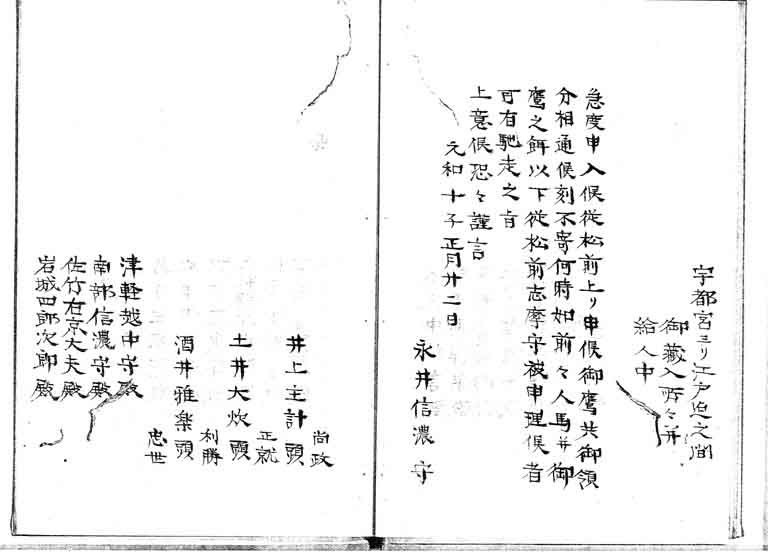 宇都宮ヨリ江戸迄之間
御蔵入所々并
給人中
急度申入候従松前上リ申候御鷹共御領
分相通候刻不寄何時如前々人馬并御
鷹之餌以下従松前志摩守被申理候者
可有馳走之旨
上意候恐々謹言
元和十子正月廿二日
永井信濃守
尚政
井上主計頭
正就
土井大炊頭
利勝
酒井雅楽頭
忠世
津軽越中守殿
南部信濃守殿
佐竹右京大夫殿
岩城四郎次郎殿